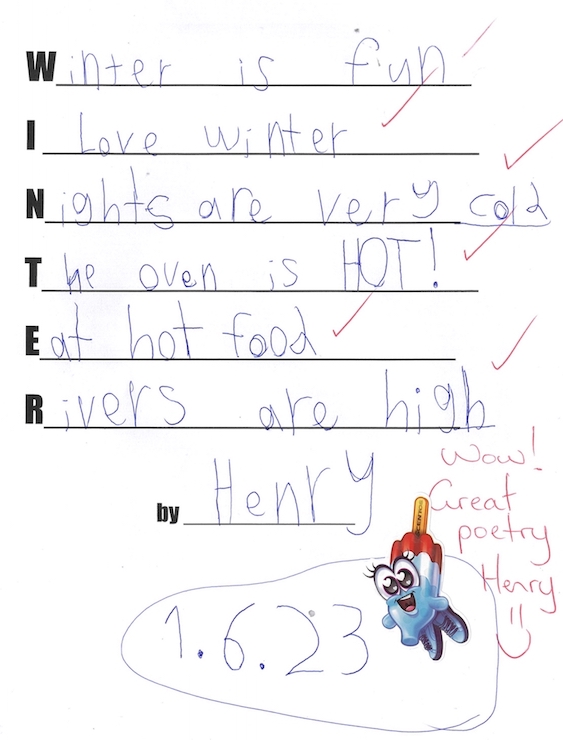 Winter is fun
I Love winter
Nights are very cold
The oven is HOT!
Eat hot food
Rivers are high
by Henry
Wow!
Great
poetry
Henry
1.6.23